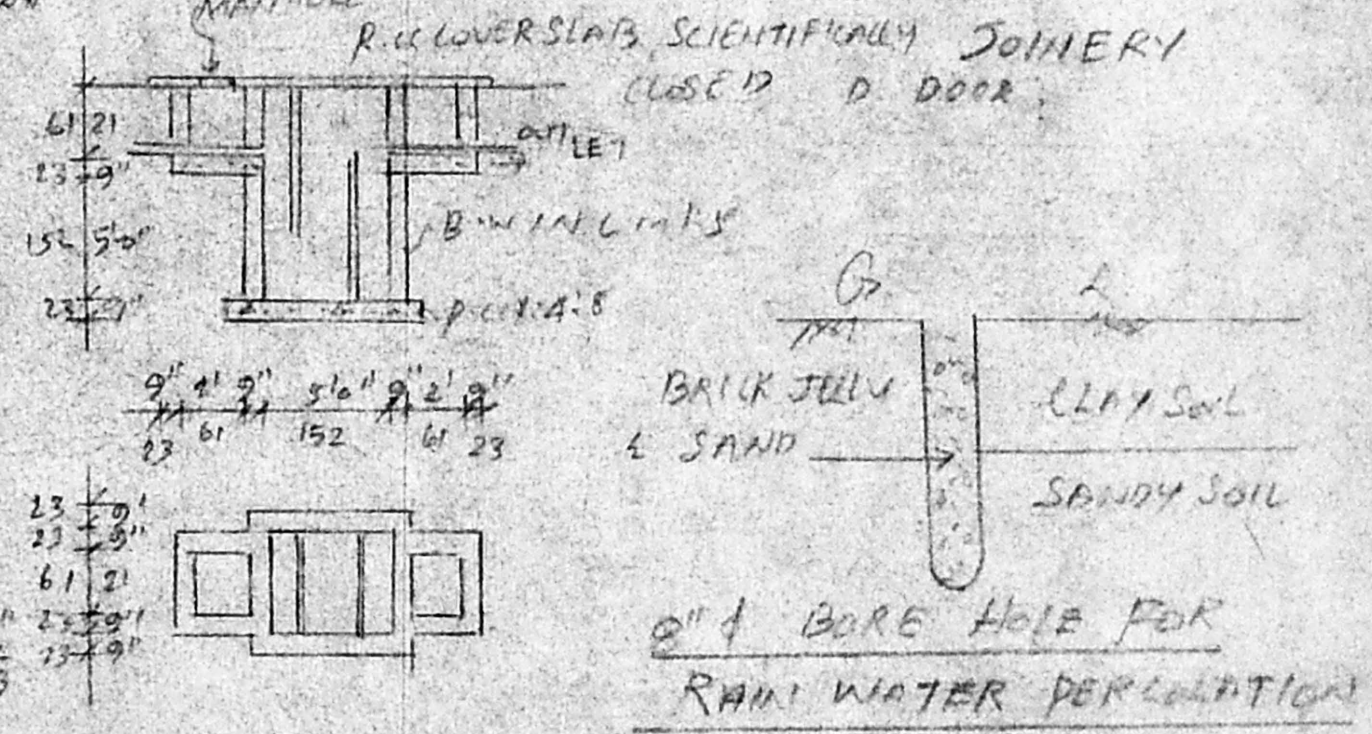 MANHOLE
R.C.C COVER SLAB SCIENTIFICALLY
CLOSED
JOINERY
D. DOOR
61 2'
23 9"
152 5'0"
23 9"
OUTLET
B.W IN C.M 1:5
P.C.C 1:4:8
9" 2' 9" 5'0" 9" 2' 9"
23 61 152 61 23
23 9"
23 9"
61 2'
23 9"
23 9"
G. L
BRICK JELLY
& SAND
CLAY SOIL
SANDY SOIL
BORE HOLE FOR
RAIN WATER PERCOLATION